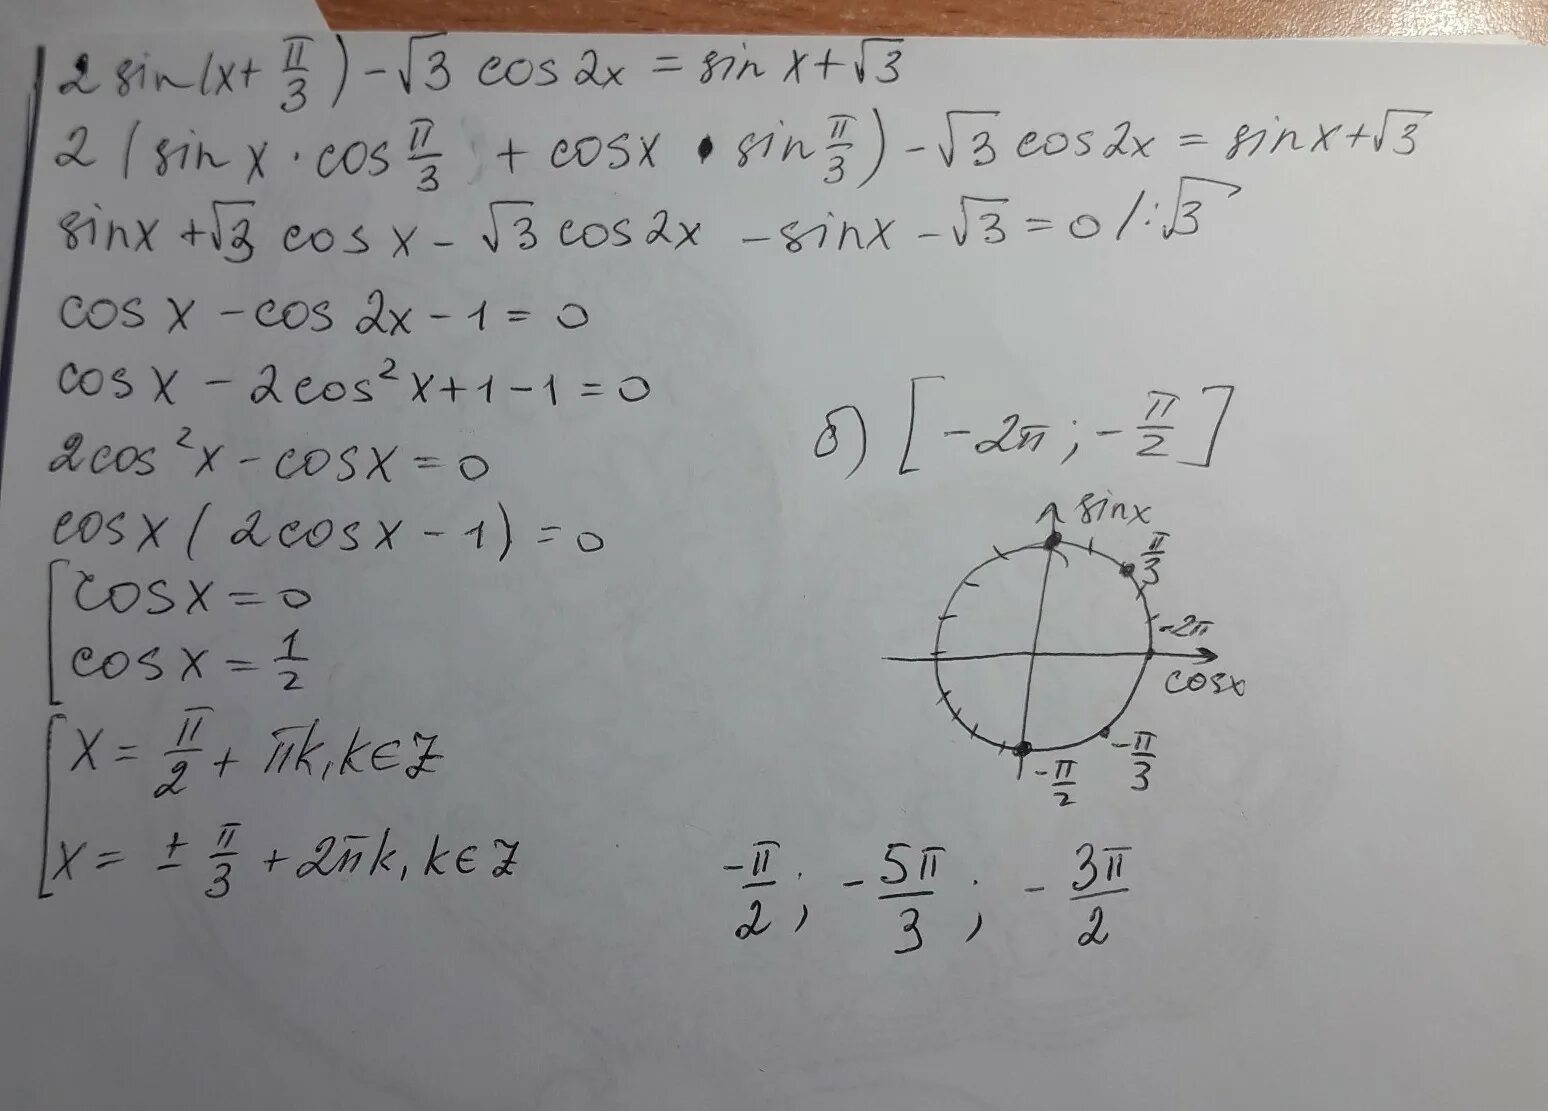 2 sin(x + π/3) - √3 cos 2x = sin x + √3
2 (sin x · cos π/3 + cos x · sin π/3) - √3 cos 2x = sin x + √3
sin x + √3 cos x - √3 cos 2x - sin x - √3 = 0 /:√3
cos x - cos 2x - 1 = 0
cos x - 2cos²x + 1 - 1 = 0
2cos²x - cos x = 0
cos x (2cos x - 1) = 0
[ cos x = 0
cos x = 1/2
[ x = π/2 + πk, k ∈ Z
x = ± π/3 + 2πk, k ∈ Z
б) [-2π; -π/2]
sin x
π/3
-2π
cos x
-π/3
-π/2
-π/2; -5π/3; -3π/2